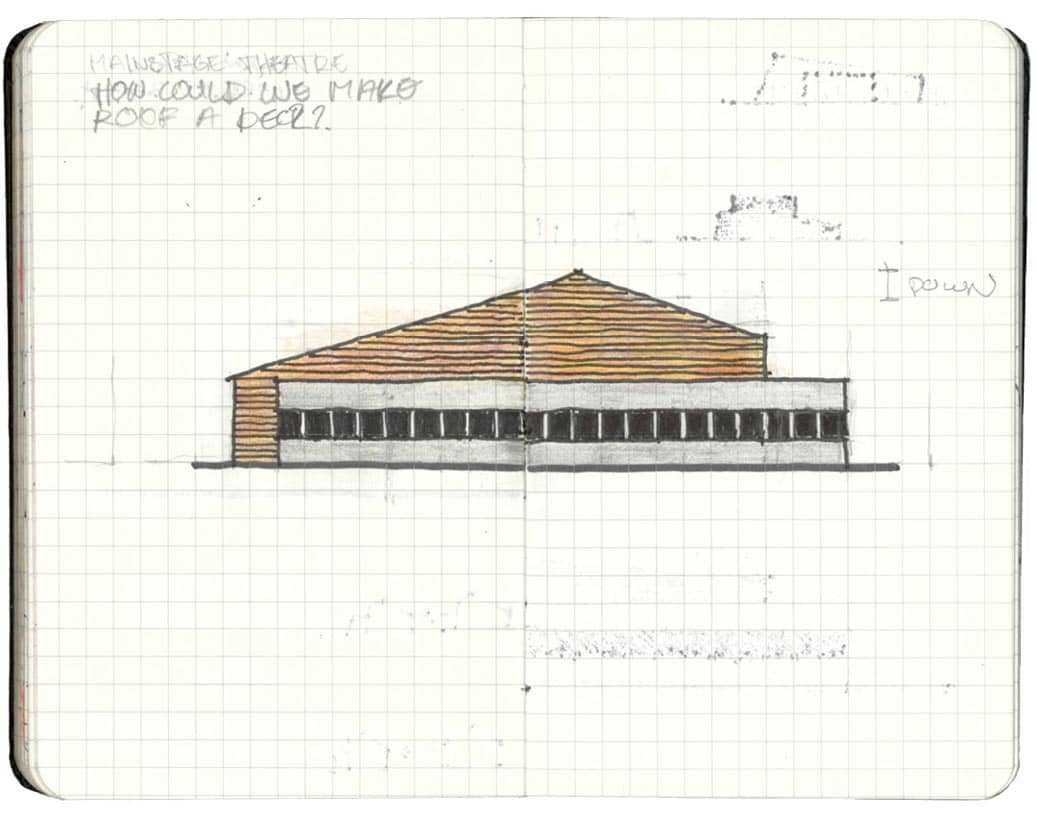 MAINSTAGE THEATRE
HOW COULD WE MAKE
ROOF A DECK?
DOWN